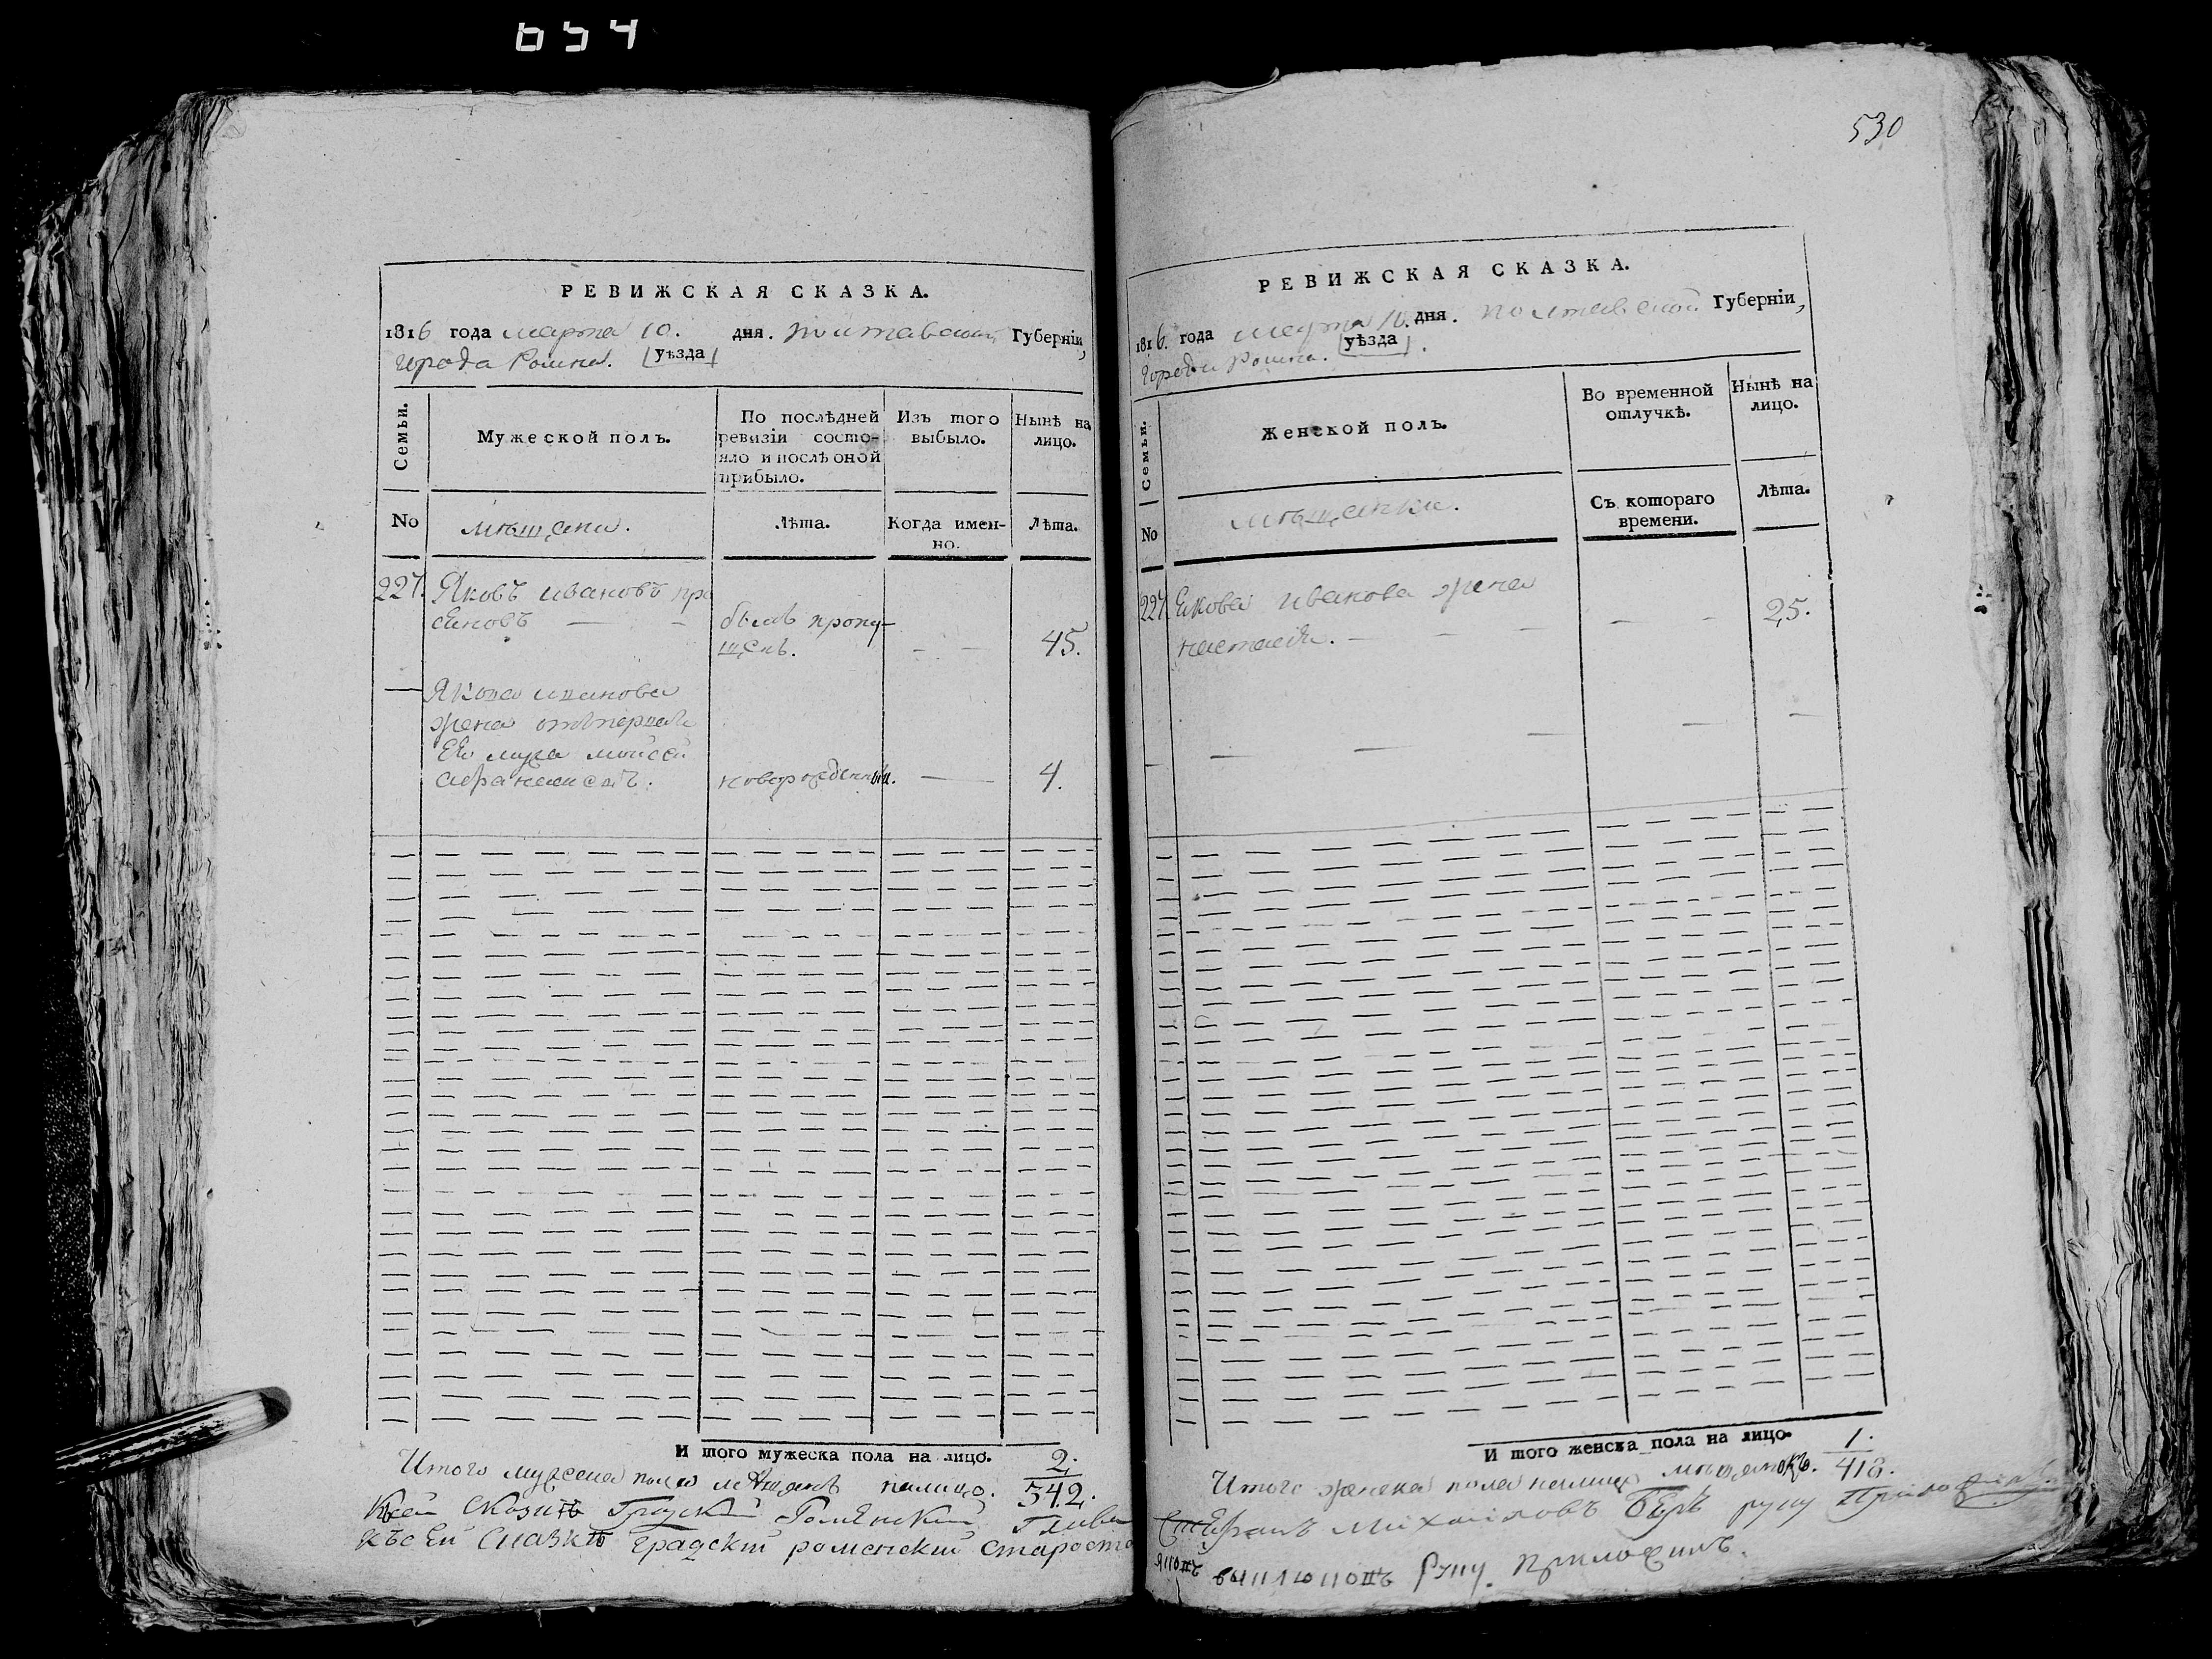 654
РЕВИЖСКАЯ СКАЗКА.
1816 года марта 10. дня. полтавской Губерніи,
города Ромна. уѣзда
Семьи.
Мужеской полъ.
По послѣдней ревизіи состояло и послѣ оной прибыло.
Изъ того выбыло.
Нынѣ на лицо.
No
мѣщани.
Лѣта.
Когда именно.
Лѣта.
227. Яковъ ивановъ
былъ пропу-
щенъ. 45.
Якова иванова
жена отъ
мужа моисей
новорожденный. 4.
И того мужеска пола на лицо. 2.
Итого мужеска пола мѣщанъ налицо. 542.
Къ сей Сказкѣ Градскій Роменскій Глава
Къ сей Сказкѣ градскій роменский староста
530
РЕВИЖСКАЯ СКАЗКА.
1816. года марта 10. дня. полтавской Губерніи,
города Ромна. уѣзда
Семьи.
Женской полъ.
Во временной отлучкѣ.
Нынѣ на лицо.
No
мѣщанки.
Съ котораго времени.
Лѣта.
227. Якова иванова жена
настасія. 25.
И того женска пола на лицо. 1.
Итого женска пола налицо мѣщанокъ. 418.
Михайловъ руку
руку приложилъ.